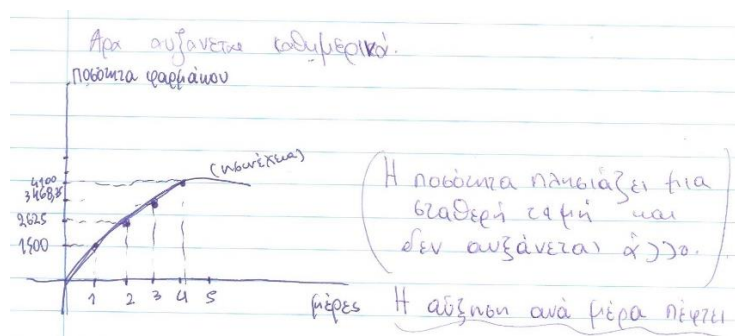 Άρα αυξάνεται καθημερικά.
Ποσότητα φαρμάκου
(η συνέχεια)
4100
3468,75
2625
1500
1 2 3 4 5
μέρες
Η ποσότητα πλησιάζει μια
σταθερή ταμή και
δεν αυξάνεται άλλο.
Η αύξηση ανά μέρα πέφτει